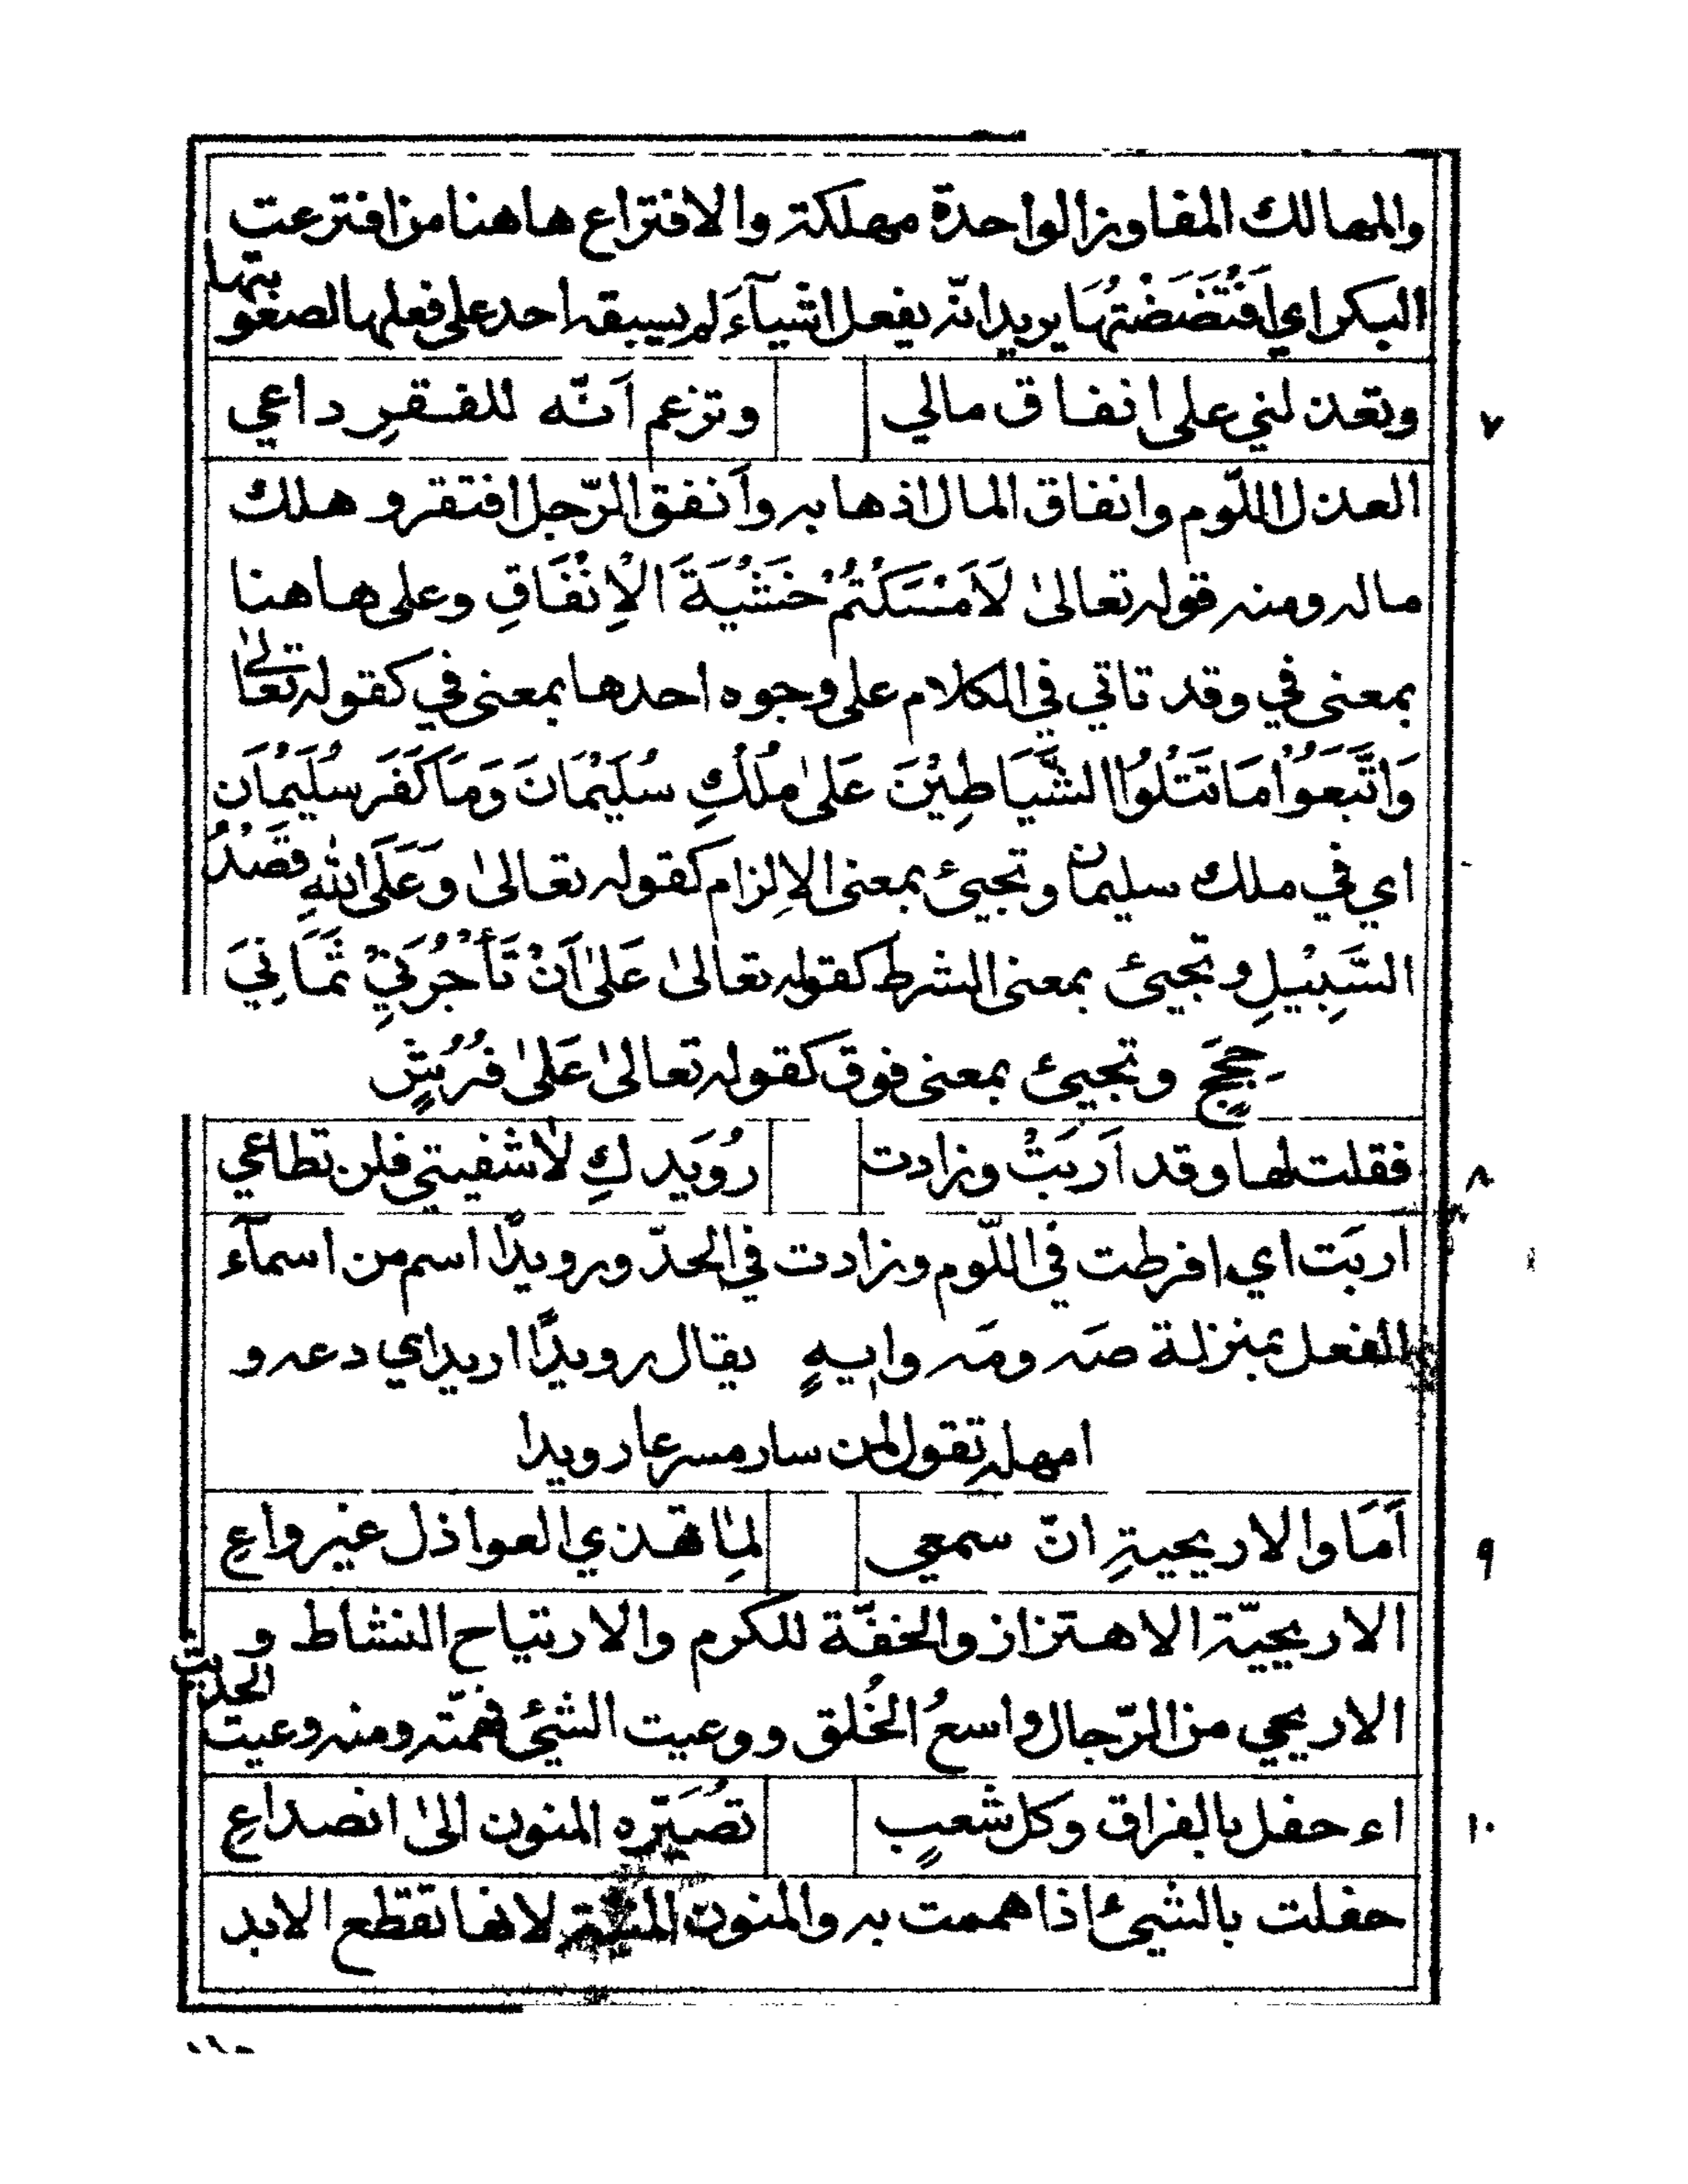 والمهالك المفاوز الواحدة مهلكة والافتراع هاهنا من افترعت
البكر اي افْتَضَضْتُهَا يريد انّه يفعل اشيآءَ لم يسبقه احد على فعلها لصعوبتها
٧ وتعذلني على انفاق مالي وتزعم اَنّه للفقرِ داعي
العذل اللّوم وانفاق المال اذهابه واَنفق الرّجل افتقر و هلك
ماله ومنه قوله تعالىٰ لَاَمْسَكْتُمْ خَشْيَةَ الْاِنْفَاقِ وعلى هاهنا
بمعنى في وقد تاتي في الكلام على وجوه احدها بمعنى في كقوله تعالىٰ
وَاتَّبَعُوْا مَا تَتْلُوُا الشَّيَاطِيْنَ عَلىٰ مُلْكِ سُلَيْمَانَ وَمَا كَفَرَ سُلَيْمَان
اي في ملك سليمان وتجيئ بمعنى الاِلزام كقوله تعالىٰ وَعَلَى اللّٰهِ قَصْدُ
السَّبِيْلِ وتجيئ بمعنى الشرط كقوله تعالىٰ عَلىٰ اَنْ تَأْجُرَنِيْ ثَمَانِيَ
حِجَجٍ وتجيئ بمعنى فوق كقوله تعالىٰ عَلىٰ فُرُشٍ
٨ فقلت لها وقد اَربَتْ وزادت رُوَيدكِ لاشفيتي فلن تطاعي
اَربَت اي افرطت في اللّوم وزادت في الحدّ ورويدًا اسم من اسمآء
الفعل بمنزلة صَه ومَه وايهٍ يقال رويدًا اريد اي دعه و
امهله تقول لمن سار مسرعا رويدا
٩ اَمَا والاريحيةِ انّ سمعي لِمَا تهذي العواذل غير واعِ
الاريحيّة الاهتزاز والخفّة للكرم والارتياح النشاط و
الاريحي من الرّجال واسعُ الخُلق ووعيت الشيئ فهمته ومنه وعيت الحديث
١٠ اء حفل بالفراق وكل شعبٍ تصُيّره المنون الىٰ انصداعِ
حفلت بالشيئ اذا هممت به والمنون المنيّة لانها تقطع الابد